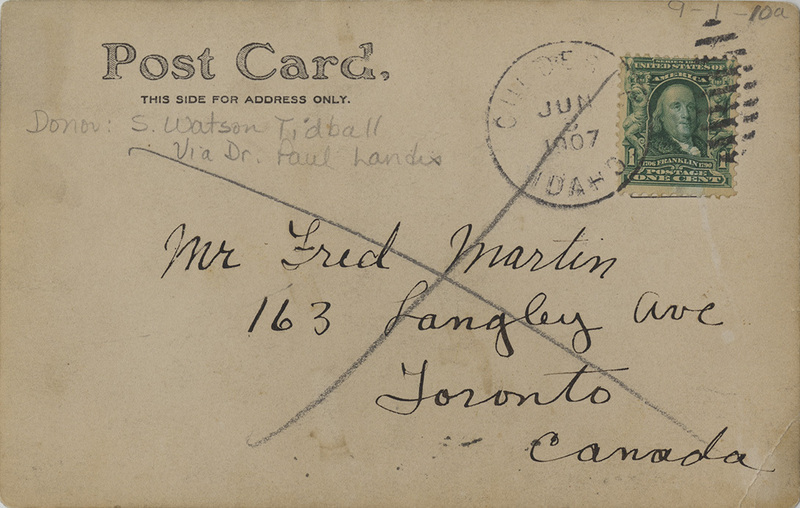 9-1-10a
Post Card.
THIS SIDE FOR ADDRESS ONLY.
Donor: S. Watson Tidball
Via Dr. Paul Landis
JUN
1907
IDAHO
UNITED STATES OF
AMERICA
1706 FRANKLIN 1790
POSTAGE
ONE CENT
Mr Fred Martin
163 Langley Ave
Toronto
Canada